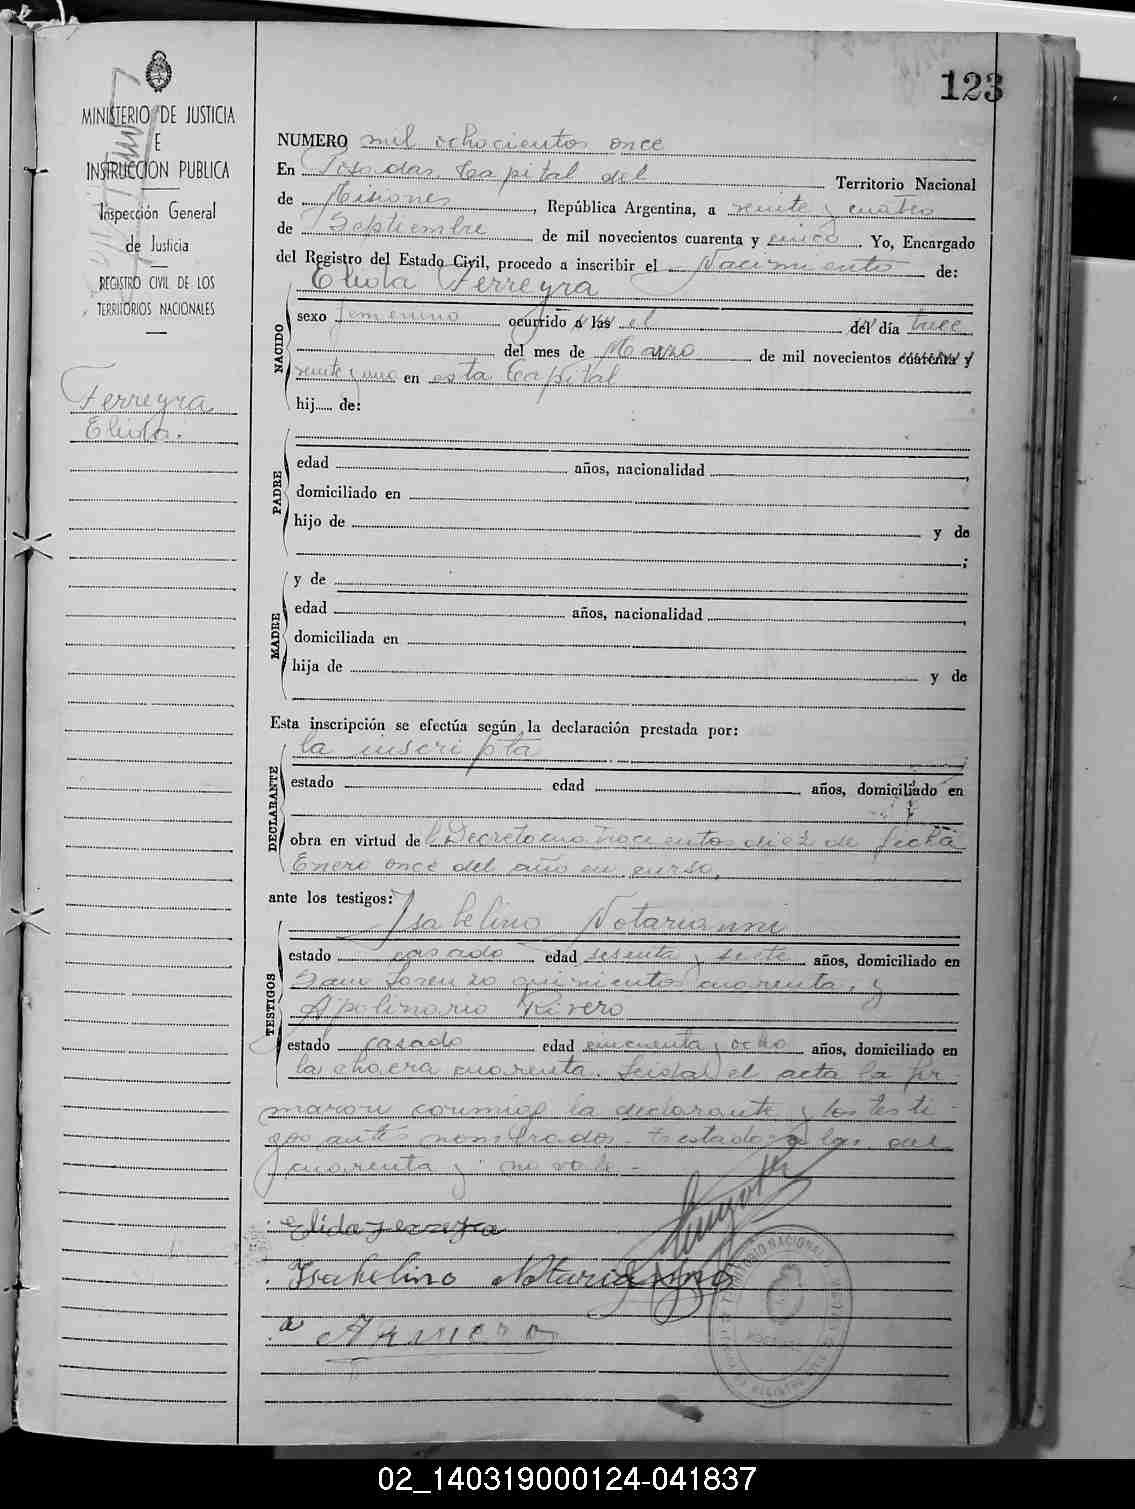 123
MINISTERIO DE JUSTICIA
E
INSTRUCCION PUBLICA
Inspección General
de Justicia
REGISTRO CIVIL DE LOS
TERRITORIOS NACIONALES
Ferreyra
Elida.
NUMERO mil ochocientos once
En Posadas Capital del Territorio Nacional
de Misiones, República Argentina, a veinte y cuatro
de Septiembre de mil novecientos cuarenta y cinco. Yo, Encargado
del Registro del Estado Civil, procedo a inscribir el Nacimiento de:
Elida Ferreyra
NACIDO
sexo femenino ocurrido a las el del día trece
del mes de Marzo de mil novecientos cuarenta y
veinte y uno en esta Capital
hij de:
PADRE
edad años, nacionalidad ,
domiciliado en
hijo de y de
;
MADRE
y de
edad años, nacionalidad ,
domiciliada en
hija de y de
Esta inscripción se efectúa según la declaración prestada por:
DECLARANTE
la inscripta
estado edad años, domiciliado en
obra en virtud de l Decreto cuatrocientos diez de fecha
Enero once del año en curso,
ante los testigos:
TESTIGOS
Isabelino Notarianni
estado casado edad sesenta y siete años, domiciliado en
San Lorenzo quinientos cuarenta, y
Apolinario Rivero
estado casado edad cincuenta y ocho años, domiciliado en
la chacra cuarenta. Leida el acta la fir-
maron conmigo la declarante y los testi-
gos antes nombrados - testado: a las. del
cuarenta y: no vale -
Elida Ferreyra
Isabelino Notarianni
A Rivero
02_140319000124-041837